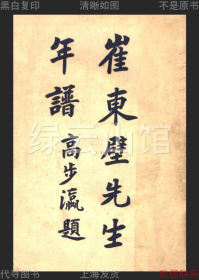 黑白复印 清晰如图 不是原书
崔東壁先生
年譜
高步瀛題
绿云山馆
代寻图书 上海发货